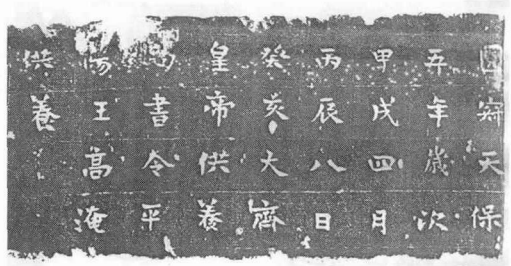 天保
五年歲次
甲戌四月
丙辰八日
癸亥大齊
皇帝供養
書令平
陽王高淹
供養